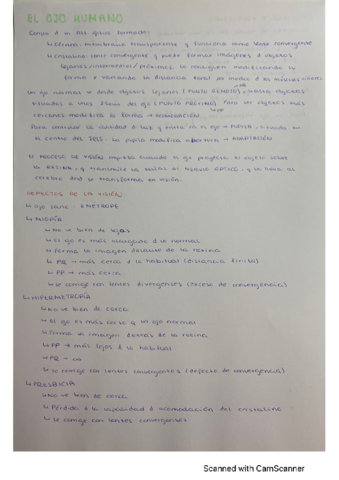 EL OJO HUMANO
↳ Córnea: membrana transparente y funciona como lente convergente
↳ Cristalino: lente convergente y puede formar imágenes d objetos
forma y variando la distancia focal por medio d los músculos
Un ojo normal ve desde objetos lejanos (PUNTO REMOTO) hasta objetos
situados a más 25cm del ojo (PUNTO PRÓXIMO). Para ver objetos más
cercanos modifica su forma → ACOMODACIÓN.
Para controlar la cantidad d luz q entra en el ojo → PUPILA, situada en
el centro del IRIS. La pupila modifica → ADAPTACIÓN
El PROCESO DE VISIÓN empieza cuando el ojo proyecta el objeto sobre
la RETINA, y transmite la señal al NERVIO ÓPTICO, y la lleva al
cerebro dnd se transforma en visión.
DEFECTOS DE LA VISIÓN
↳ Ojo sano: EMÉTROPE
↳ MIOPÍA
↳ No ve bien de lejos
↳ El ojo es más convergente d lo normal
↳ Forma la imagen delante de la retina
↳ PR → más cerca d lo habitual (distancia finita)
↳ PP → más cerca
↳ Se corrige con lentes divergentes (exceso de convergencia)
↳ HIPERMETROPÍA
↳ No ve bien de cerca
↳ El ojo es más corto q un ojo normal
↳ Forma la imagen detrás de la retina
↳ PP → más lejos d lo habitual
↳ PR → ∞
↳ Se corrige con lentes convergentes (defecto de convergencia)
↳ PRESBICIA
↳ No ve bien de cerca
↳ Pérdida d la capacidad d acomodación del cristalino
↳ Se corrige con lentes convergentes
Scanned with CamScanner